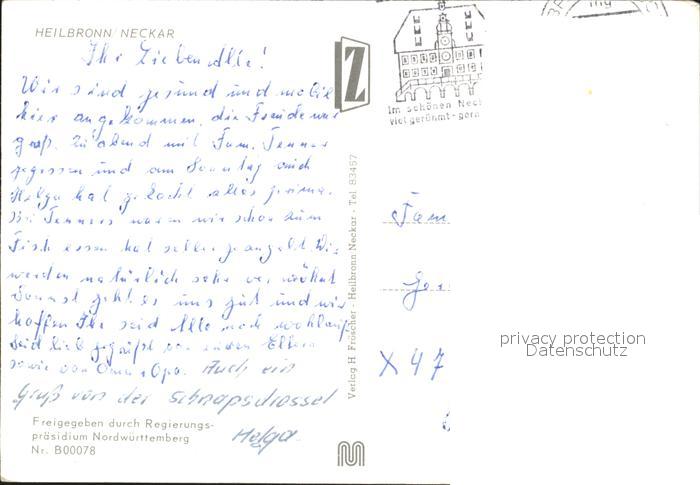 HEILBRONN / NECKAR
Ihr Lieben Alle!
Wir sind gesund und mobil
hier angekommen, die Freude war
groß. Zu abend mit Fam. Tenner
gegessen und am Sonntag auch
Helga hat gekocht alles prima.
Bei Tenners waren wir schon zum
Fisch essen hat selber geangelt Wir
werden natürlich sehr verwöhnt
Sonnst geht es uns gut und wir
hoffen Ihr seid Alle noch wohlauf
Seid lieb gegrüßt von euren Eltern
sowie von Oma u Opa. Auch ein
Gruß von der Schnapsdrossel
Helga.
Freigegeben durch Regierungs-
präsidium Nordwürttemberg
Nr. B00078
Z
Verlag H. Fröscher - Heilbronn Neckar - Tel. 83457
Im schönen Neck
viel gerühmt - gern
Fam
X 47
privacy protection
Datenschutz